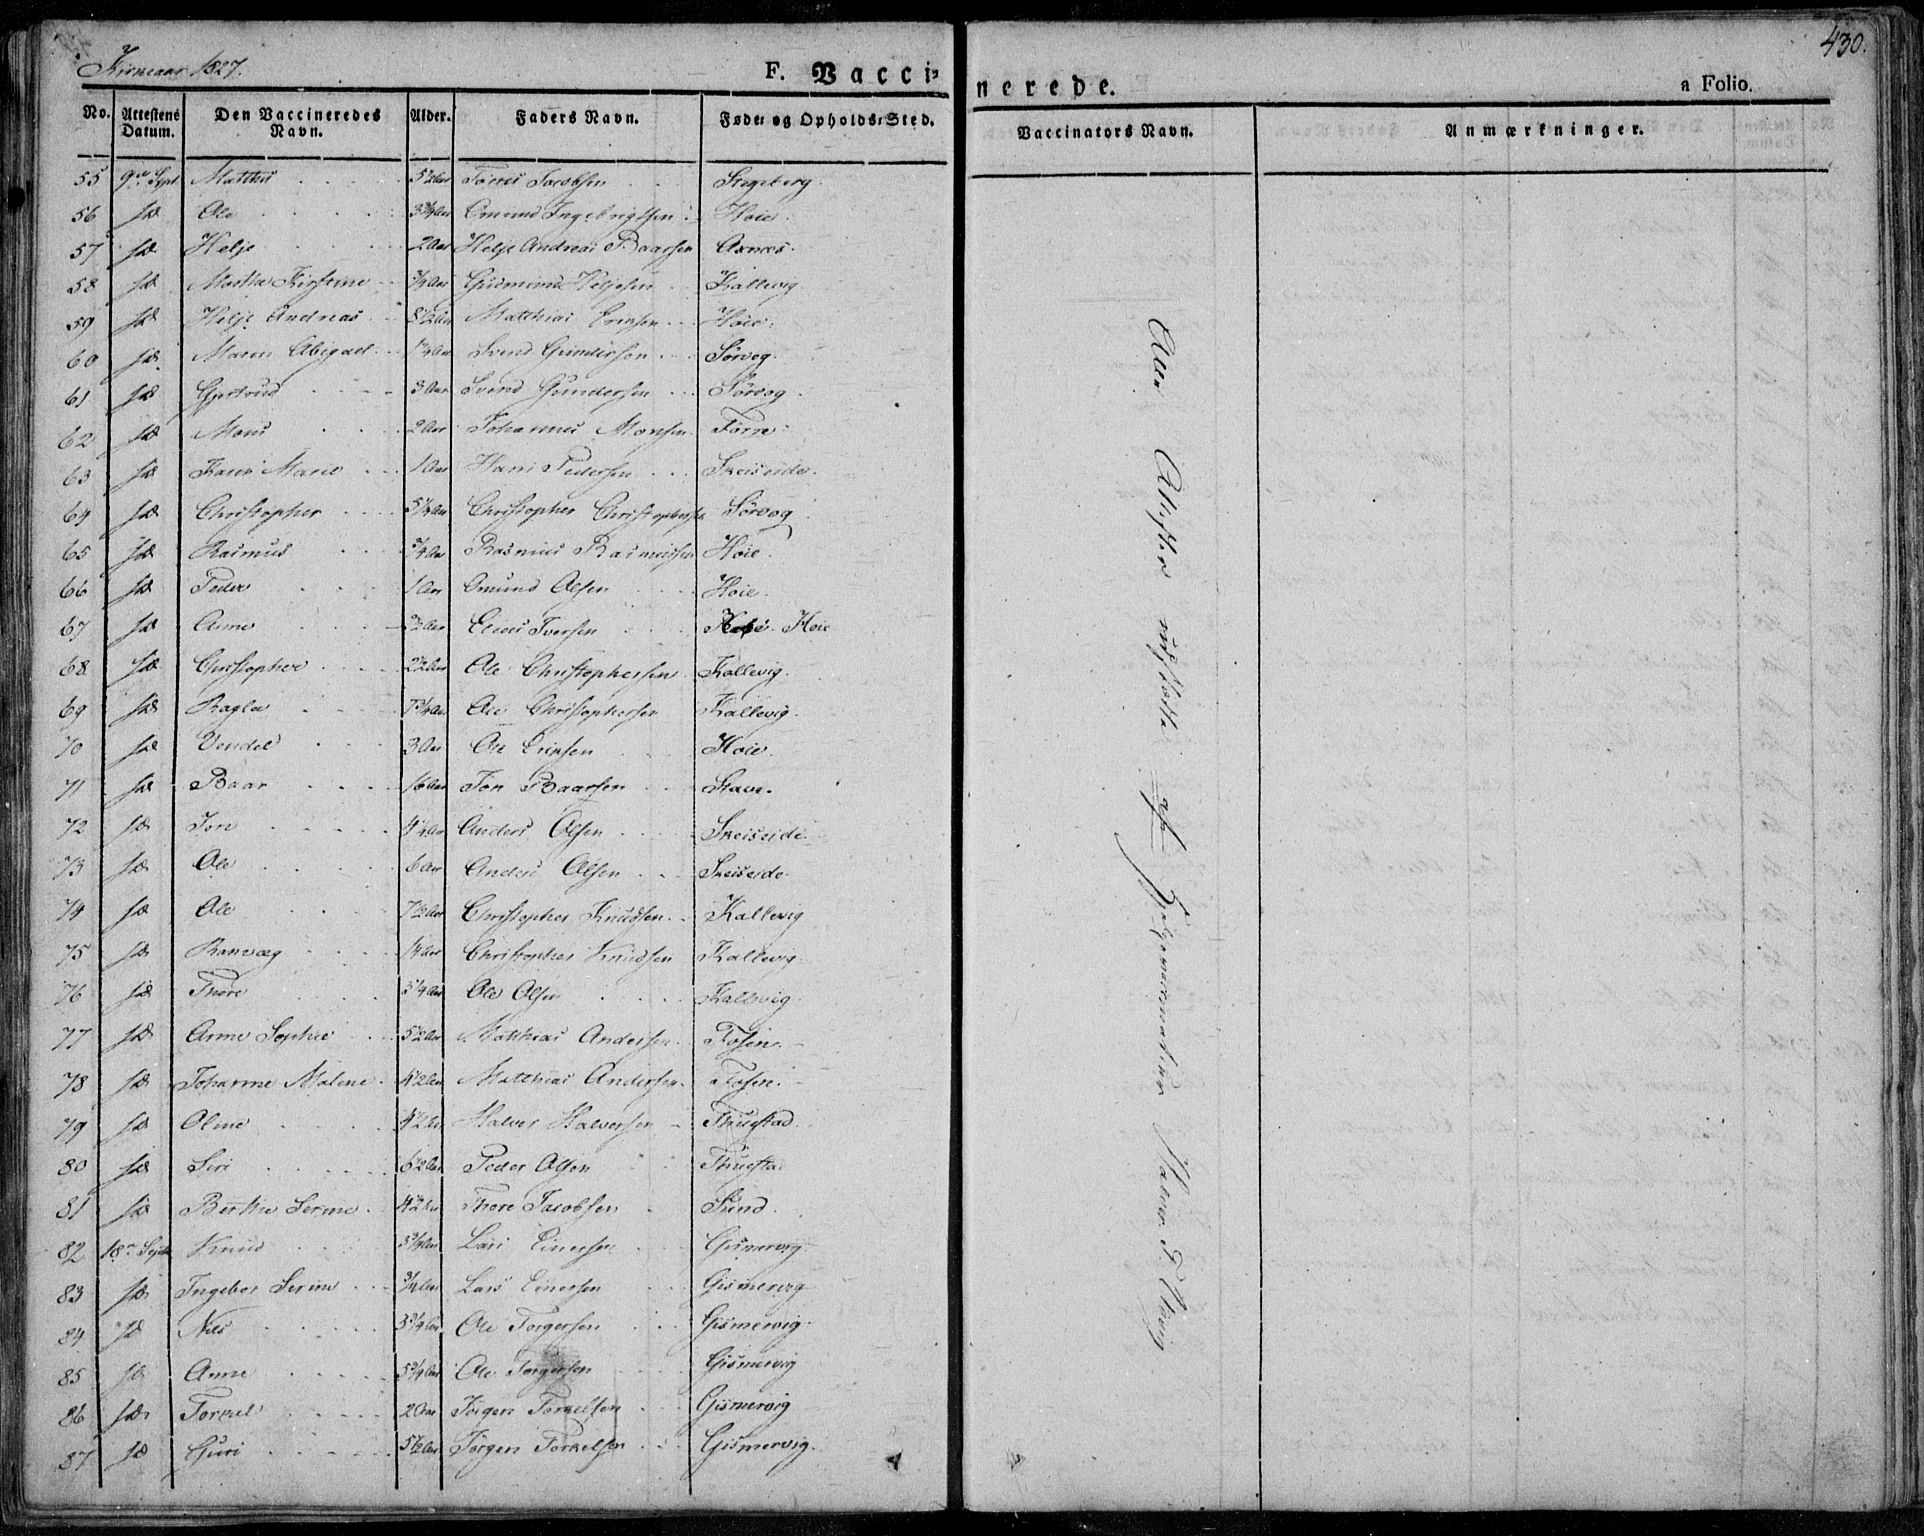 Kirkeaar 1827.
430.
F. Vacci=
nerede.
a Folio.
No. Attestens Datum. Den Vaccineredes Navn. Alder. Faders Navn. Føde- og Opholds-Sted. Vaccinators Navn. Anmærkninger.
55 9de Sept Matthis 5½ Aar Tørres Jacobsen Stegeberg
56 do Ole 3¾ Aar Omund Ingebrigtsen Høie
57 do Helje 2 Aar Helje Andreas Baarsen Axnes
58 do Marthe Kirstine ¾ Aar Gudmund Heljesen Kallevig
59 do Helje Andreas 8½ Aar Matthias Ericsen Høie
60 do Maren Abigael 1¼ Aar Svend Gundersen Sørvog
61 do Gjertrud 3 Aar Svend Gundersen Sørvog
62 do Mons 2 Aar Johannes Monsen Førre
63 do Karen Marie 1 Aar Hans Pedersen Skeiseide
64 do Christopher 5¼ Aar Christopher Christophersen Sørvog
65 do Rasmus ¾ Aar Rasmus Rasmussen Høie
66 do Peder 1 Aar Omund Olsen Høie
67 do Anne Elias Iversen Høie
68 do Christopher 2½ Aar Ole Christophersen Kallevig
69 do Ragla 7¾ Aar Ole Christophersen Kallevig
70 do Vendel 3 Aar Ole Ericsen Høie
71 do Baar 16 Aar Jon Baarsen Stave
72 do Jon 4½ Aar Anders Olsen Skeiseide
73 do Ole 6 Aar Anders Olsen Skeiseide
74 do Ole 7½ Aar Christopher Knudsen Kallevig
75 do Ranveg Christopher Knudsen Kallevig
76 do Thore 5¼ Aar Ole Olsen Kallevig
77 do Anne Sophie 5½ Aar Matthias Andersen Fosen
78 do Johanne Malene 4½ Aar Matthias Andersen Fosen
79 do Oline 4½ Aar Halver Halversen Thuestad
80 do Siri 6½ Aar Peder Olsen Thuestad
81 do Berthe Serine 4½ Aar Thore Jacobsen Sund
82 18de Sept Knud 3¾ Aar Lars Einersen Gismervig
83 do Ingebor Serine ¾ Aar Lars Einersen Gismervig
84 do Nils 3¾ Aar Ole Torgersen Gismervig
85 do Anne 5¾ Aar Ole Torgersen Gismervig
86 do Torkel 2 Aar Jørgen Torkelsen Gismervig
87 do Guri 5½ Aar Jørgen Torkelsen Gismervig
Alle Attester udstædte af